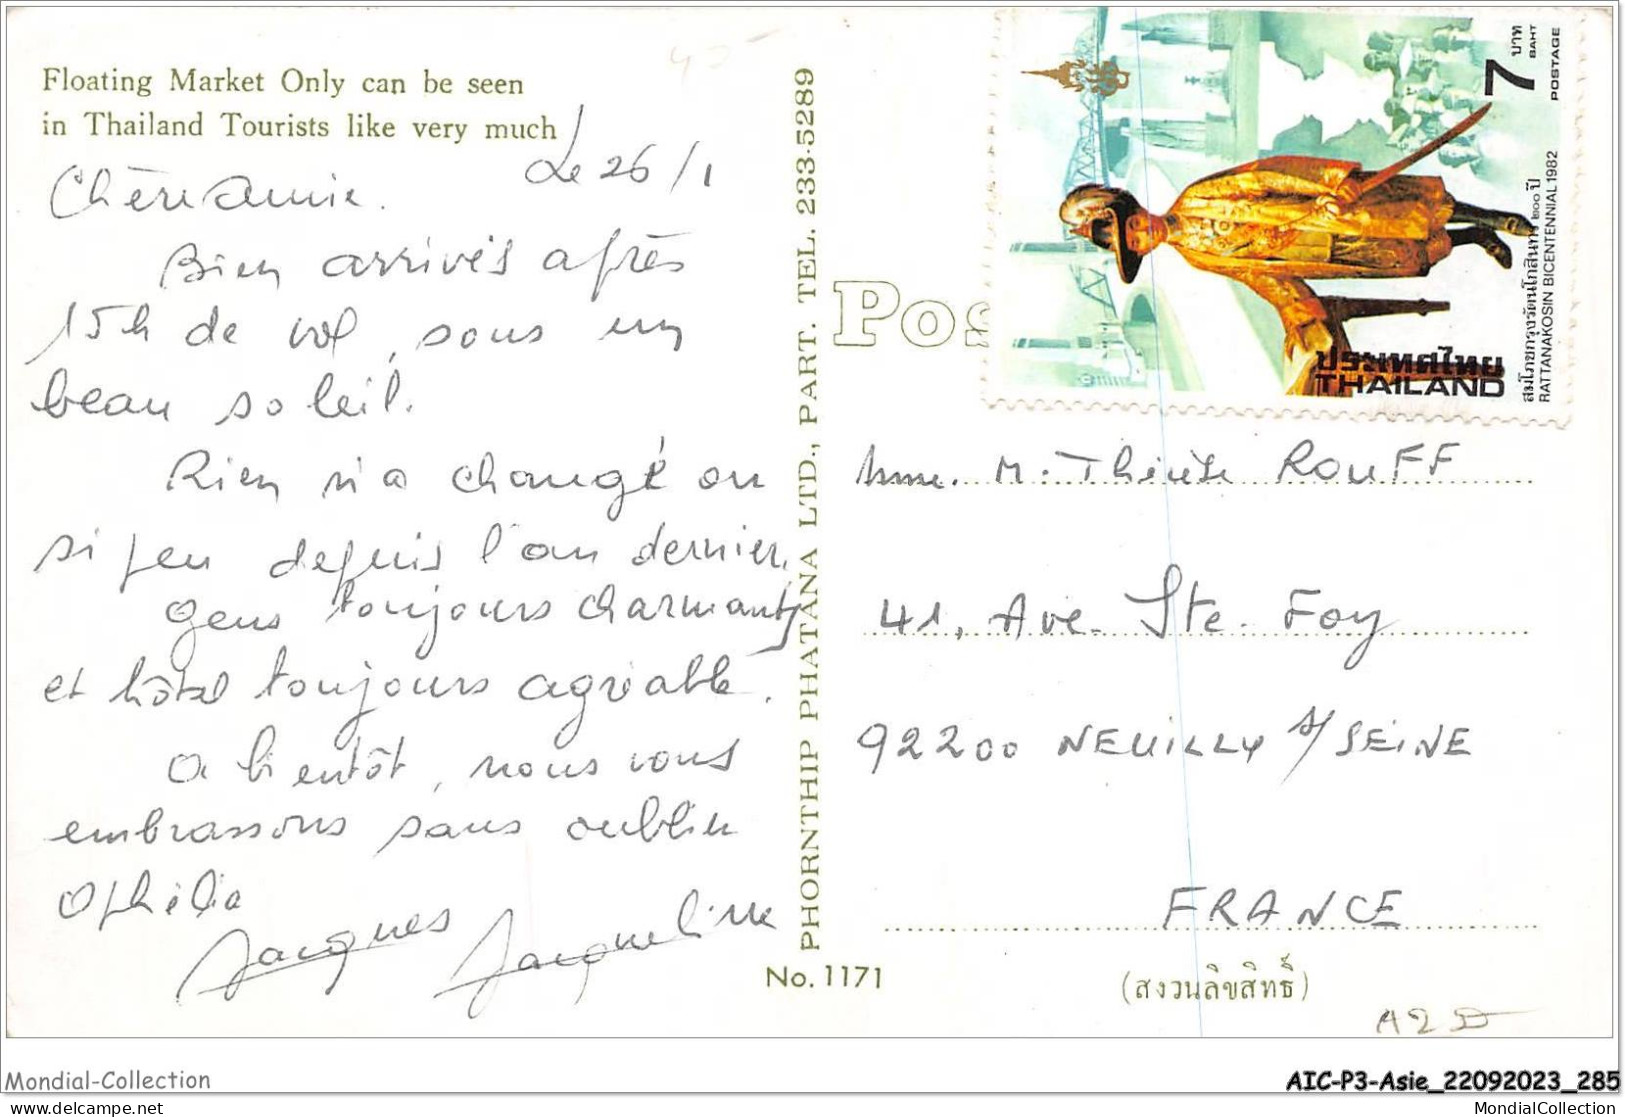 Floating Market Only can be seen
in Thailand Tourists like very much
Le 26/1
Chère amie.
Bien arrivés après
15h de vol, sous un
beau soleil.
Rien n'a changé ou
si peu depuis l'an dernier.
Gens toujours charmants
et hôtel toujours agréable.
A bientôt, nous vous
embrassons sans oublier
Ophélia
Jacques Jacqueline
PHORNTHIP PHATANA LTD., PART. TEL. 233-5289
No. 1171
Pos
7
บาท
BAHT
POSTAGE
ประเทศไทย
THAILAND
สมโภชกรุงรัตนโกสินทร์ ๒๐๐ ปี
RATTANAKOSIN BICENTENNIAL 1982
Mme. M. Thérèse ROUFF
41, Ave. Ste. Foy
92200 NEUILLY s/ SEINE
FRANCE
(สงวนลิขสิทธิ์)
Mondial-Collection
AIC-P3-Asie_22092023_285
mondial-collection.com
MondialCollection